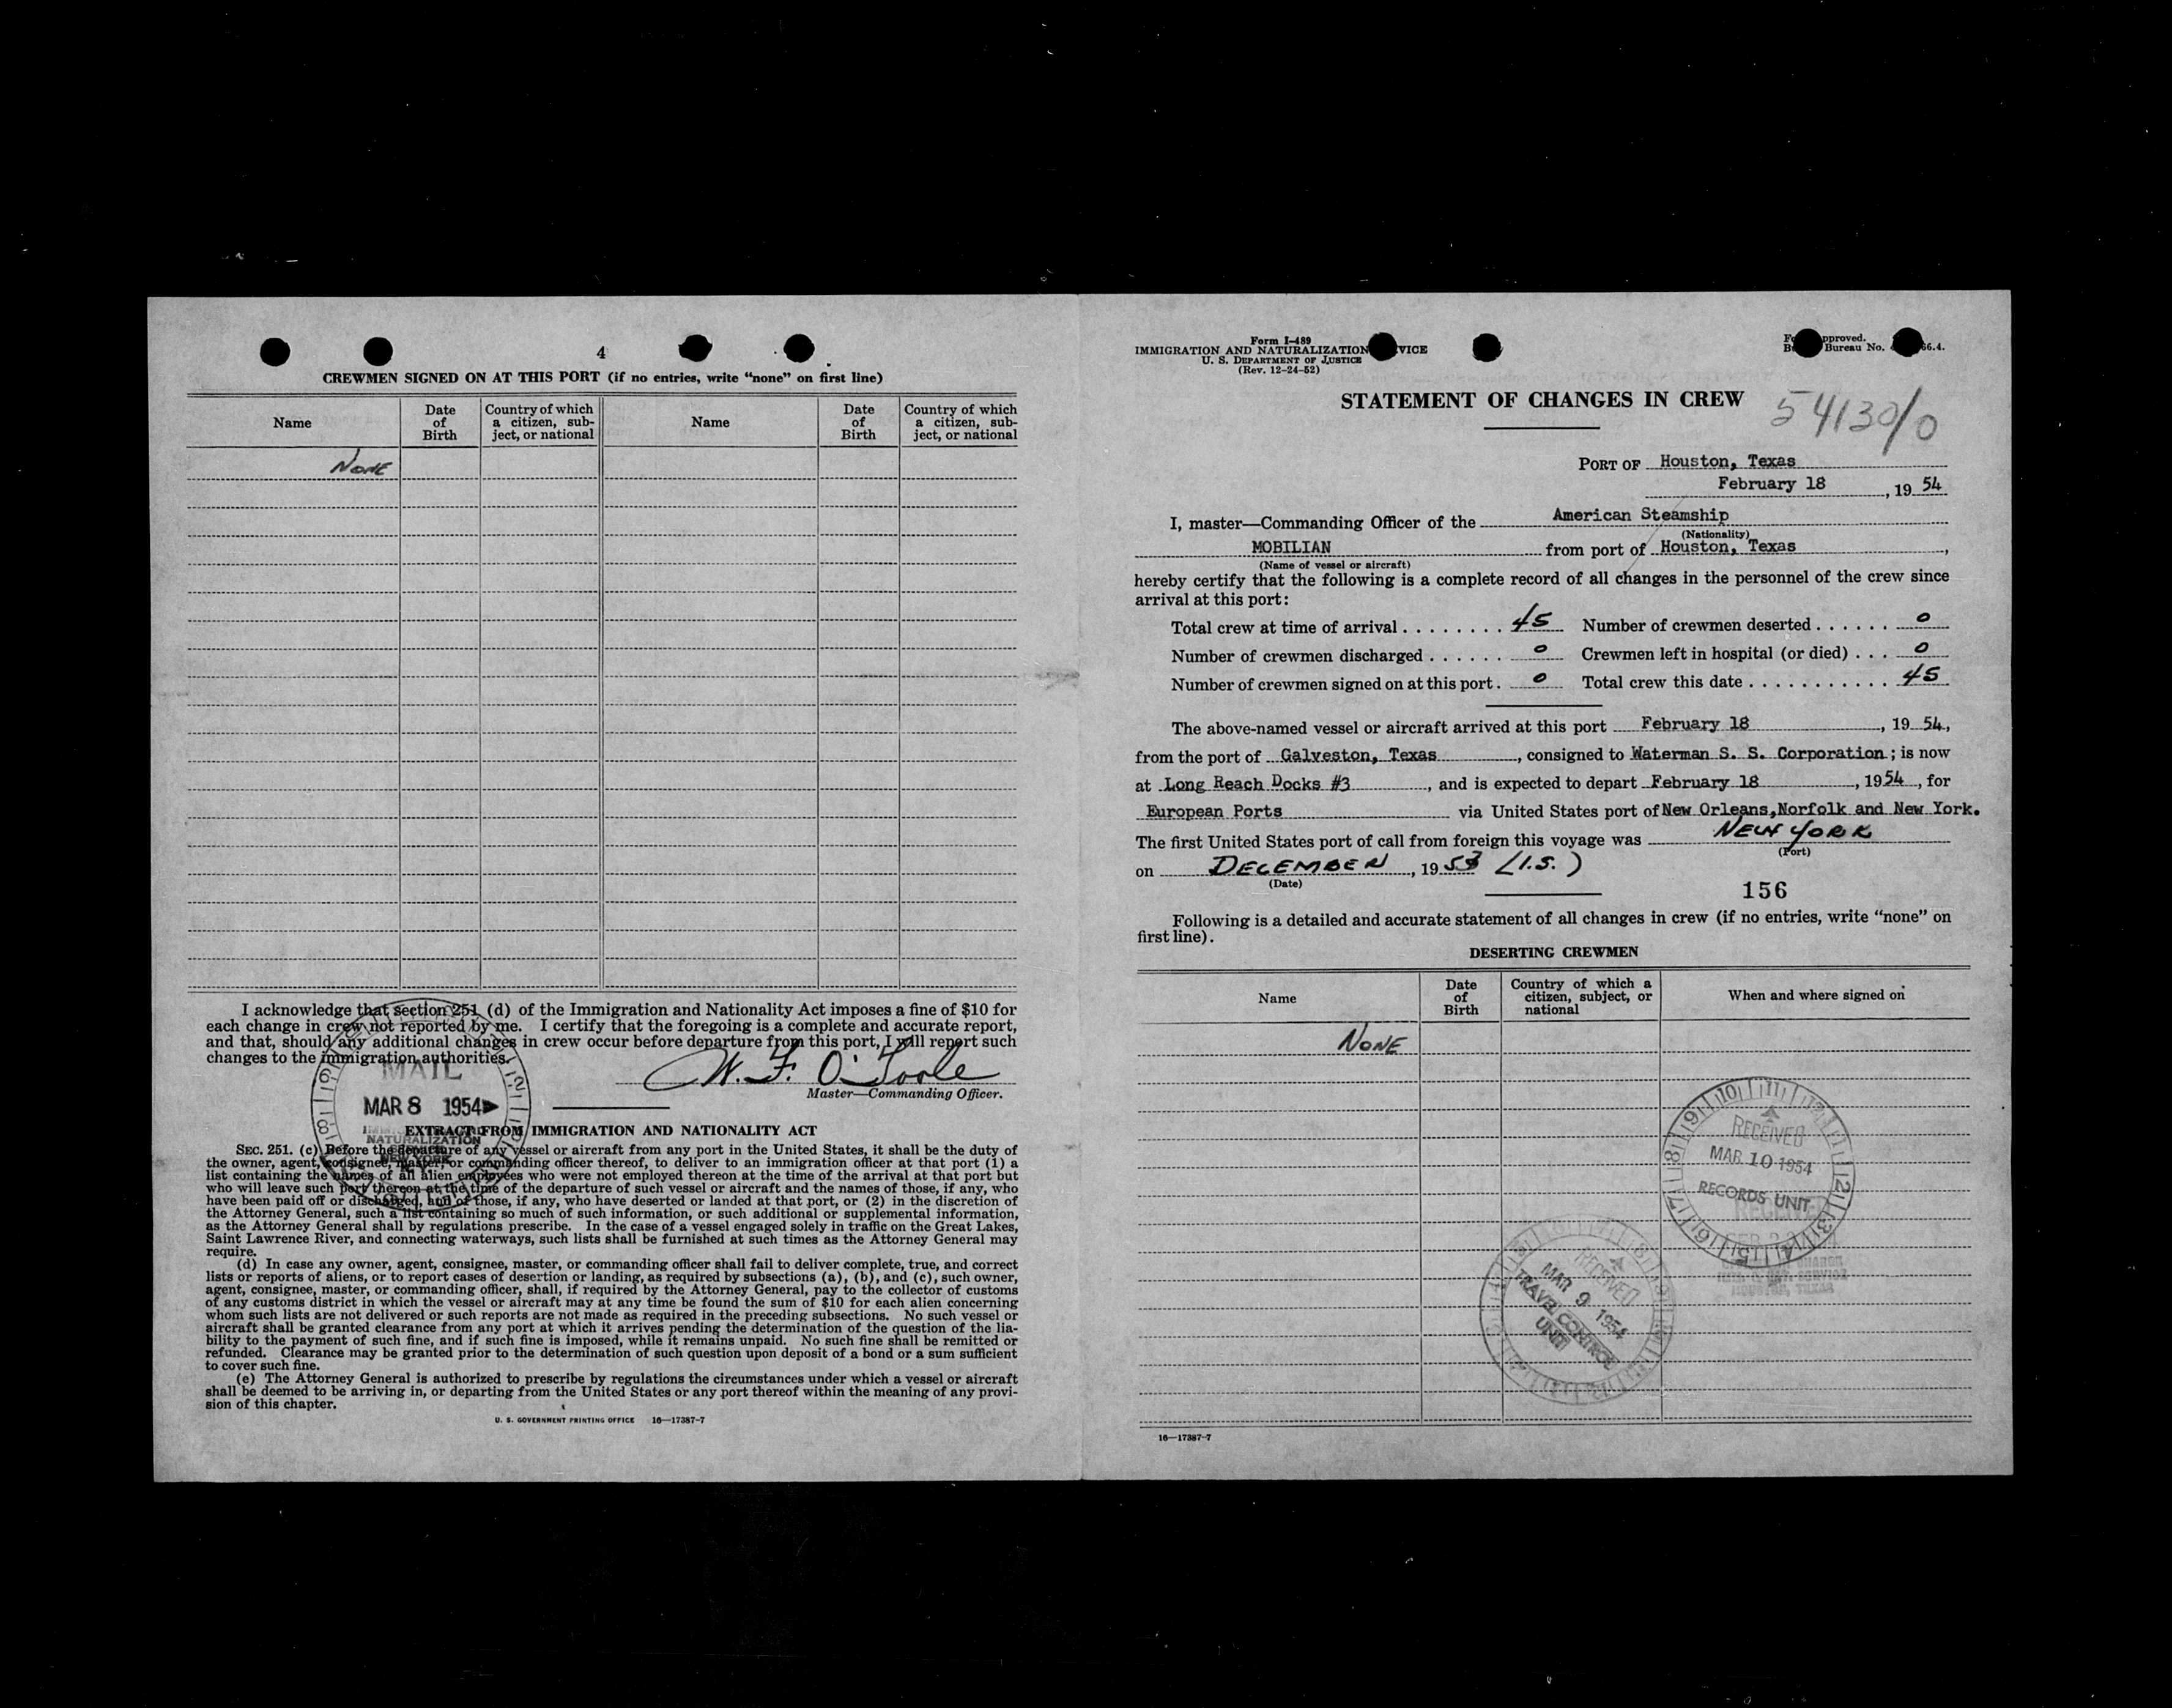 4
CREWMEN SIGNED ON AT THIS PORT (if no entries, write “none” on first line)
Name
Date of Birth
Country of which a citizen, subject, or national
Name
Date of Birth
Country of which a citizen, subject, or national
NONE
I acknowledge that section 251 (d) of the Immigration and Nationality Act imposes a fine of $10 for
each change in crew not reported by me. I certify that the foregoing is a complete and accurate report,
and that, should any additional changes in crew occur before departure from this port, I will report such
changes to the immigration authorities.
W. F. O'Toole
Master—Commanding Officer.
MAIL
MAR 8 1954
NATURALIZATION
NEW YORK
EXTRACT FROM IMMIGRATION AND NATIONALITY ACT
SEC. 251. (c) Before the departure of any vessel or aircraft from any port in the United States, it shall be the duty of
the owner, agent, consignee, master, or commanding officer thereof, to deliver to an immigration officer at that port (1) a
list containing the names of all alien employees who were not employed thereon at the time of the arrival at that port but
who will leave such port thereon at the time of the departure of such vessel or aircraft and the names of those, if any, who
have been paid off or discharged, and of those, if any, who have deserted or landed at that port, or (2) in the discretion of
the Attorney General, such a list containing so much of such information, or such additional or supplemental information,
as the Attorney General shall by regulations prescribe. In the case of a vessel engaged solely in traffic on the Great Lakes,
Saint Lawrence River, and connecting waterways, such lists shall be furnished at such times as the Attorney General may
require.
(d) In case any owner, agent, consignee, master, or commanding officer shall fail to deliver complete, true, and correct
lists or reports of aliens, or to report cases of desertion or landing, as required by subsections (a), (b), and (c), such owner,
agent, consignee, master, or commanding officer, shall, if required by the Attorney General, pay to the collector of customs
of any customs district in which the vessel or aircraft may at any time be found the sum of $10 for each alien concerning
whom such lists are not delivered or such reports are not made as required in the preceding subsections. No such vessel or
aircraft shall be granted clearance from any port at which it arrives pending the determination of the question of the lia-
bility to the payment of such fine, and if such fine is imposed, while it remains unpaid. No such fine shall be remitted or
refunded. Clearance may be granted prior to the determination of such question upon deposit of a bond or a sum sufficient
to cover such fine.
(e) The Attorney General is authorized to prescribe by regulations the circumstances under which a vessel or aircraft
shall be deemed to be arriving in, or departing from the United States or any port thereof within the meaning of any provi-
sion of this chapter.
U. S. GOVERNMENT PRINTING OFFICE 16—17387-7
Form I-489
IMMIGRATION AND NATURALIZATION VICE
U. S. DEPARTMENT OF JUSTICE
(Rev. 12-24-52)
pproved.
Bureau No. 66.4.
STATEMENT OF CHANGES IN CREW
54130/0
PORT OF Houston, Texas
February 18, 19 54
I, master—Commanding Officer of the American Steamship
(Nationality)
MOBILIAN from port of Houston, Texas,
(Name of vessel or aircraft)
hereby certify that the following is a complete record of all changes in the personnel of the crew since
arrival at this port:
Total crew at time of arrival ........ 45 Number of crewmen deserted ...... 0
Number of crewmen discharged ...... 0 Crewmen left in hospital (or died) ... 0
Number of crewmen signed on at this port. 0 Total crew this date ........... 45
The above-named vessel or aircraft arrived at this port February 18, 19 54,
from the port of Galveston, Texas, consigned to Waterman S. S. Corporation; is now
at Long Reach Docks #3, and is expected to depart February 18, 1954, for
European Ports via United States port of New Orleans, Norfolk and New York.
The first United States port of call from foreign this voyage was NEW YORK
(Port)
on DECEMBER, 19 53 (I.S.)
(Date)
156
Following is a detailed and accurate statement of all changes in crew (if no entries, write “none” on
first line).
DESERTING CREWMEN
Name
Date of Birth
Country of which a citizen, subject, or national
When and where signed on
NONE
RECEIVED
MAR 10 1954
RECORDS UNIT
RECEIVED
HOUSTON, TEXAS
RECEIVED
MAR 9 1954
TRAVEL CONTROL
UNIT
16—17387-7